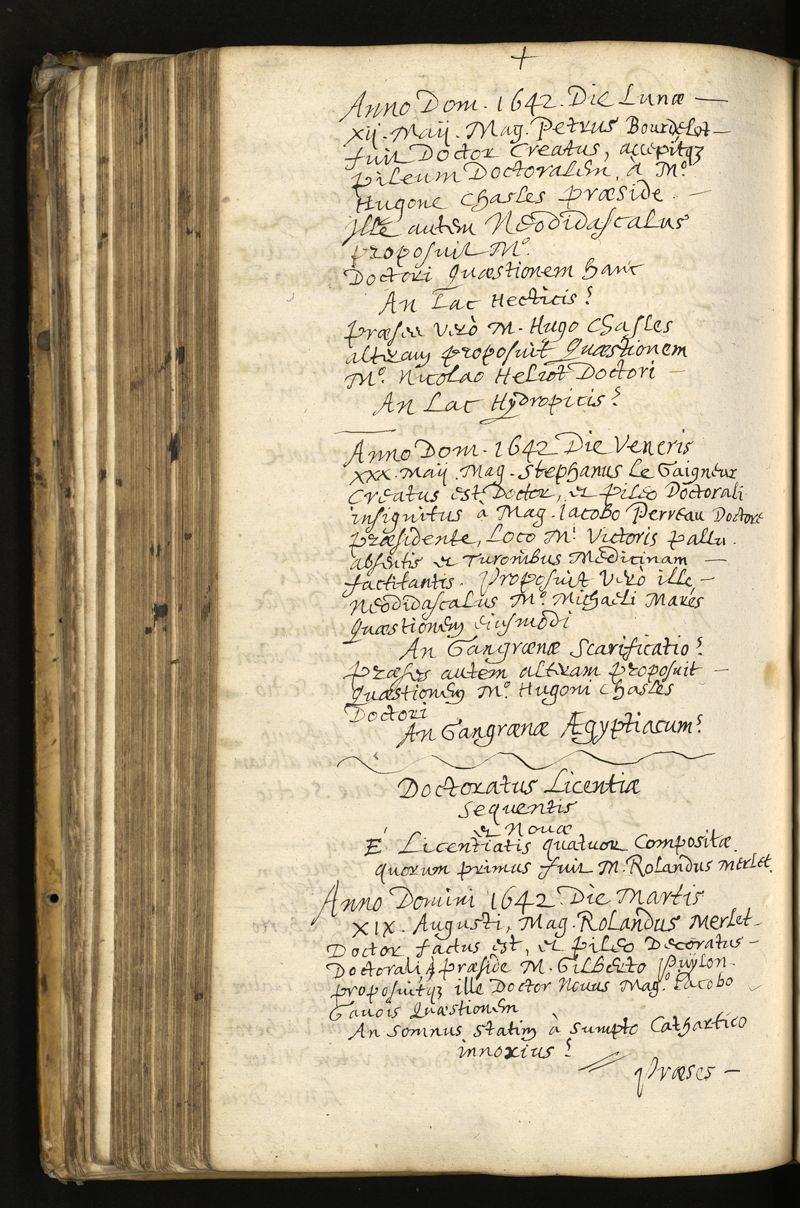 +
Anno Dom. 1642. Die Lunæ —
xij. Maij. Mag. Petrus Bourdelot —
fuit Doctor Creatus, accepitqz
pileum Doctoralem, à Mº.
Hugone Chasles præside. —
Ille autem Neodidascalus
proposuit Mº.
Doctori Quæstionem hanc
An Lac Hecticis?
Præses verò M. Hugo Chasles
alteram proposuit Quæstionem
Mº. Nicolao Heliot Doctori —
An Lac Hydropicis?
Anno Dom. 1642 Die Veneris
xxx. Maij. Mag. Stephanus Le Gaigneur
Creatus est Doctor, et pileo Doctorali
insignitus à Mag. Iacobo Perreau Doctore
præsidente, Loco Mi. Victoris pallu.
absentis et Turonibus Medicinam —
factitantis. Proposuit verò ille —
Neodidascalus Mº. Michaeli Marés
Quæstionem eiusmodi
An Gangrænæ Scarificatio?
Præses autem alteram proposuit —
Quæstionem Mº. Hugoni Chasles
Doctori
An Gangrænæ Ægyptiacum?
Doctoratus Licentiæ
Sequentis
et Novæ
E' Licentiatis quatuor Compositæ.
quorum primus fuit M. Rolandus Merlet.
Anno Domini 1642. Die Martis
XIX. Augusti, Mag. Rolandus Merlet —
Doctor factus est, et pileo Decoratus —
Doctorali à præside M. Gilberto Puylon.
proposuitqz ille Doctor Novus Magº. Iacobo
Gavois Quæstionem
An Somnus statim à sumpto Cathartico
innoxius?
Præses —